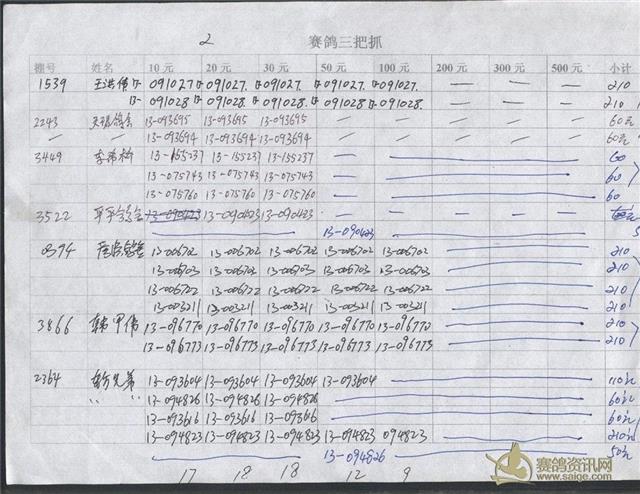 2 赛鸽三把抓
棚号 姓名 10 元 20 元 30 元 50 元 100 元 200 元 300 元 500 元 小计
1539 王洪 13-091027 13-091027 13-091027 13-091027 13-091027 — — — 210
13-091028 13-091028 13-091028 13-091028 13-091028 — — — 210
2243 13-093695 13-093695 13-093695 — — — — — 60元
— — 13-093694 13-093694 13-093694 — — — — — 60元
3449 李 13-155237 13-155237 13-155237 — 60
13-075743 13-075743 13-075743 — 60
13-075760 13-075760 13-075760 60
3522 平平鸽舍 13-090423 13-090423 13-090423 — — — — —
13-090423
0394 鸽舍 13-006702 13-006702 13-006702 13-006702 13-006702 210
13-006703 13-006703 13-006703 13-006703 13-006703 210
13-006722 13-006722 13-006722 13-006722 13-006722 210
13-003211 13-003211 13-003211 13-003211 13-003211 210
3866 韩甲伟 13-096770 13-096770 13-096770 13-096770 13-096770 210
13-096773 13-096773 13-096773 13-096773 13-096773 210
2364 兄弟 13-093604 13-093604 13-093604 13-093604 110元
〃 〃 13-094826 13-094826 13-094826 60元
13-093616 13-093616 13-093616 60元
13-094823 13-094823 13-094823 13-094823 094823 210元
13-094826 50元
17 18 18 12 9
赛鸽资讯网
www.saige.com